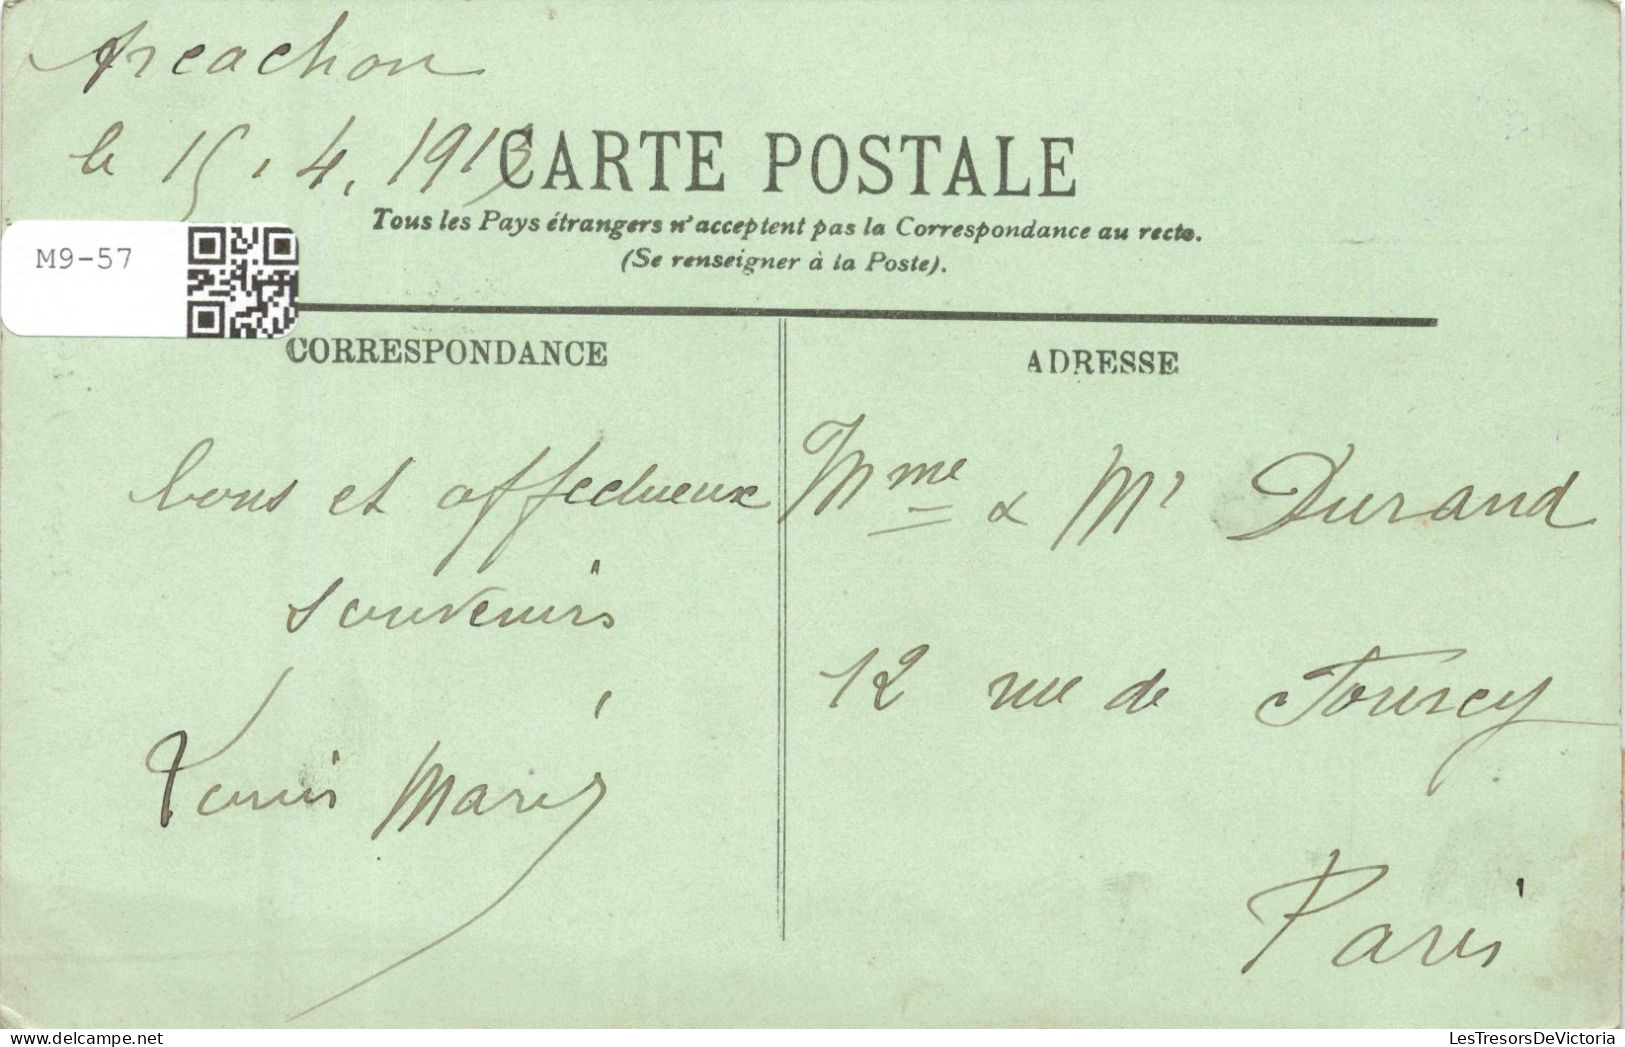 Arcachon
le 15.4.1913
CARTE POSTALE
Tous les Pays étrangers n'acceptent pas la Correspondance au recto.
(Se renseigner à la Poste).
M9-57
CORRESPONDANCE
bons et affectueux
souvenirs
Louis Marie
ADRESSE
Mme & Mr Durand
12 rue de
Paris
LesTresorsDeVictoria.com